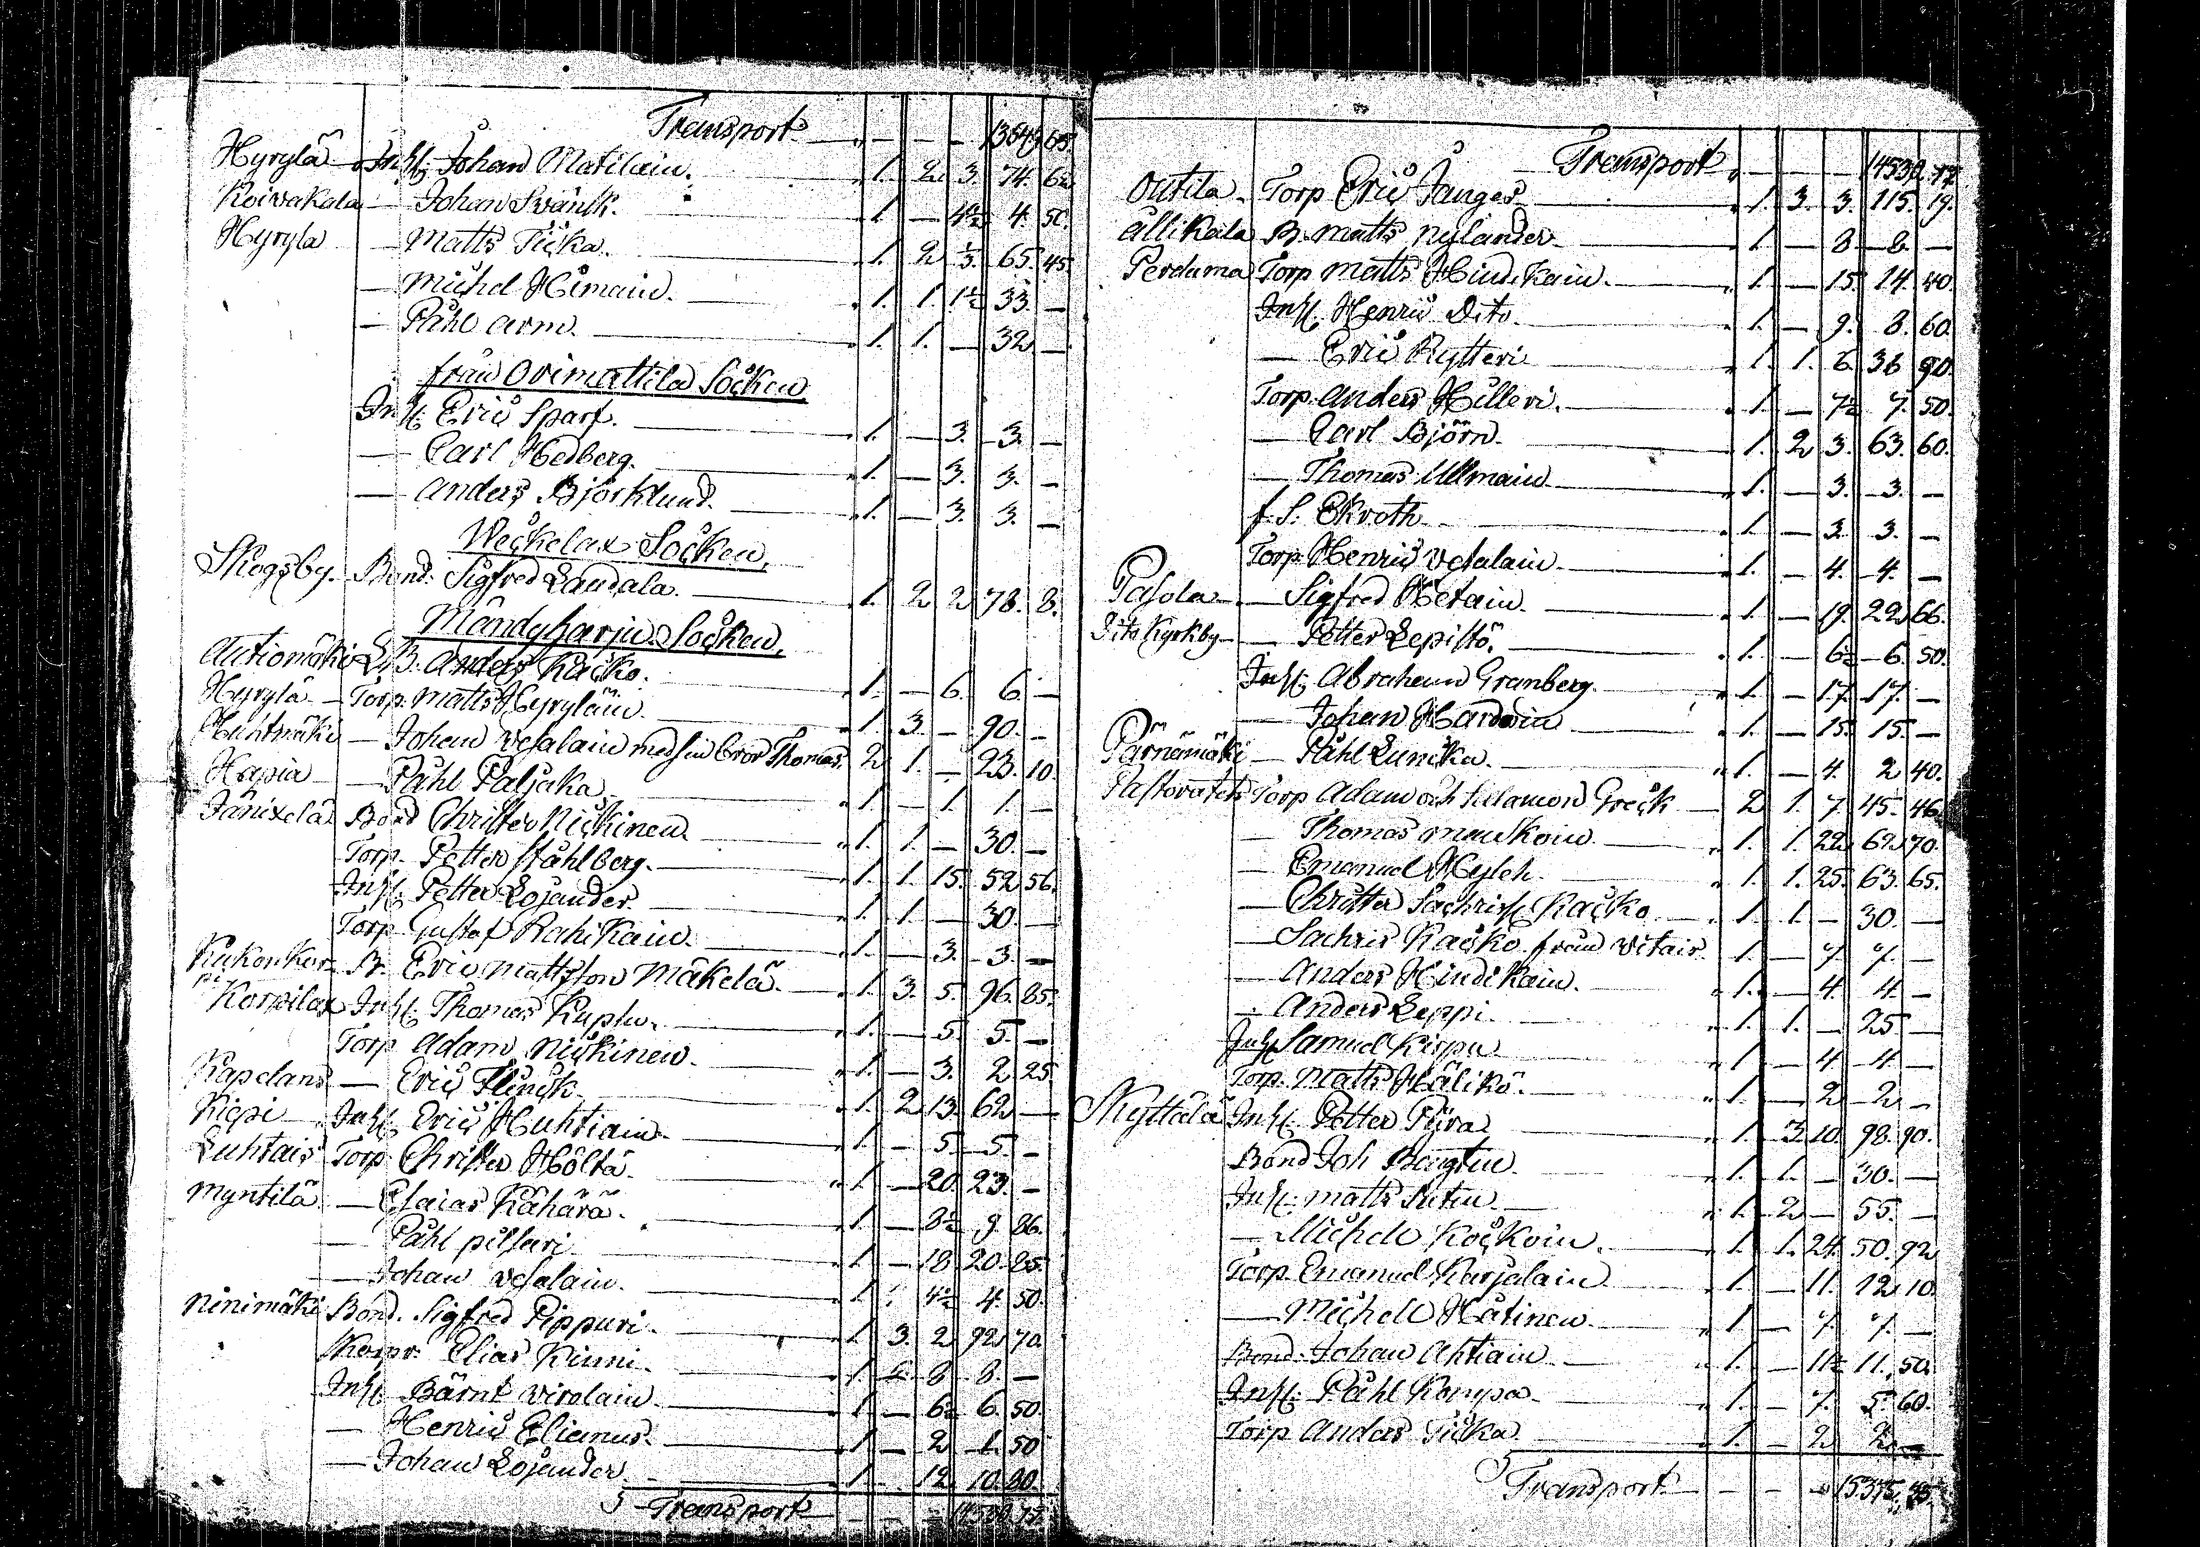 Transport — — — 13649 65.
Hyrylä Inh. Johan Matilain. 1. 2 3. 74. 62
Koivakala — Johan Svänk. 1 — 4½ 4. 50.
Hyryla — Matts Ticka. 1. 2 ½. 65. 45.
— Michel Himain. 1. 1 1½ 33. —
— Påhl arm. 1. 1. — 32 —
från Orimattila Socken
Inh. Eric Sparf. 1. — 3. 3. —
— Carl Hedberg. 1. — 3. 3. —
— Anders Björklund. 1. — 3. 3. —
Weckelax Socken.
Skogsby. Bond. Sigfred Laudala. 1. 2 2 78. 8.
Mändyharju Socken.
Autiomäki B. Anders Kacko. 1. — 6. 6 —
Hyrylä — Torp. Matts Hyryläin. 1. 3. — 90. —
Huhtmäki — Johan Vesalain med sin bror Thomas. 2 1. — 23. 10.
Hapia — Påhl Paljaka 1 — 1. 1. —
Jänixelä Bond Christer Nickinen 1. 1. — 30. —
Torp. Petter Ståhlberg. 1. 1. 15. 52 56.
Inh. Petter Lojander. 1. 1. — 30. —
Torp. Gustaf Rahikain. 1. — 3. 3. —
Kukonkor- B. Eric Mattsson Mäkelä. 1. 3. 5. 96. 85.
pi
Korpilax Inh. Thomas Kuplu. 1. — 5. 5. —
Torp Adam Nickinen. 1. — 3. 2 25.
Kapelans — Eric Flinck 1. 2 13. 62 —
Kiepi Inh. Eric Huhtiain. 1. — 5. 5. —
Luhtais Torp Christer Höltä. 1. — 20. 23. —
Myntilä — Esaias Kähärä. 1. — 8½ 9. 86.
— Påhl pilsari 1. — 18 20. 85.
— Johan Vesalain. 1. 4½ 4. 50.
Ninimäki Bond. Sigfred Pippuri. 1. 3. 2 92. 70.
Korpr. Elias Kinni. 1. 8 8. —
Inh. Bärnt Virolain. 1 — 6½ 6. 50.
— Henric Elienus. 1 — 2 1. 50
— Johan Lojander. 1. 12. 10. 20.
Transport — — — 14530. 17.
Transport — — — 14530. 17.
Outila. Torp Eric Janger. 1. 3. 3. 115. 19.
Ällikala B. Matts Nylander. 1. — 8 — 8. —
Perduma Torp Matts Hindikain. 1. — 15. 14. 40.
Inh. Henric Dito. 1. — 9. 8. 60.
— Eric Rytteri 1. 1. 6. 36 90.
Torp. Anders Hilleri. 1. — 7½ 7. 50.
— Carl Björn. 1. 2 3. 63. 60.
— Thomas Ullmain 1. — 3. 3. —
f. S. Ekroth 1. — 3. 3. —
Torp. Henric Vesalain 1. — 4. 4. —
Pasola — Sigfred Hetain. 1. — 19. 22 66.
Dito Kyrkby — Petter Lepistö. 1. — 6½ 6. 50.
Inh. Abraham Granberg. 1 — 17. 17. —
— Johan Hardwin 1. — 15. 15. —
Pärnämäki — Påhl Lunicka. 1. — 4. 2 40.
Torp Adam och Salamon Greck 2 1. 7. 45. 46.
— Thomas Maukoin 1. 1. 22 62 70.
— Emanuel Hyleh. 1. 1. 25. 63. 65.
— Christer Kacko 1. 1. — 30. —
— Sachris Kacko från Vitair. 1. — 7. 7. —
— Anders Hindikain. 1. — 4. 4. —
— Anders Leppi. 1. 1. — 25 —
Inh. Samuel Kirpu 1 — 4 4 —
Torp. Matts Hälikö. 1 — 2 2 —
Nyttälä Inh. Petter Pura 1. 3. 10. 98. 90.
Bond Joh Bagtin. 1. 1. — 30. —
Inh. Matts Sutin 1. 2 — 55. —
— Michell Kockoin. 1. 1. 24. 50. 92
Torp. Emanuel Karjalain 1. — 11. 12. 10.
— Michell Hätinen. 1 — 7. 7. —
Bond. Johan Ahtiain 1. — 11½ 11. 50.
Inh. Påhl Kaupa. 1. — 7. 5. 60.
Torp Anders Ticka 1. — 2 2 —
Transport — — — 15375.